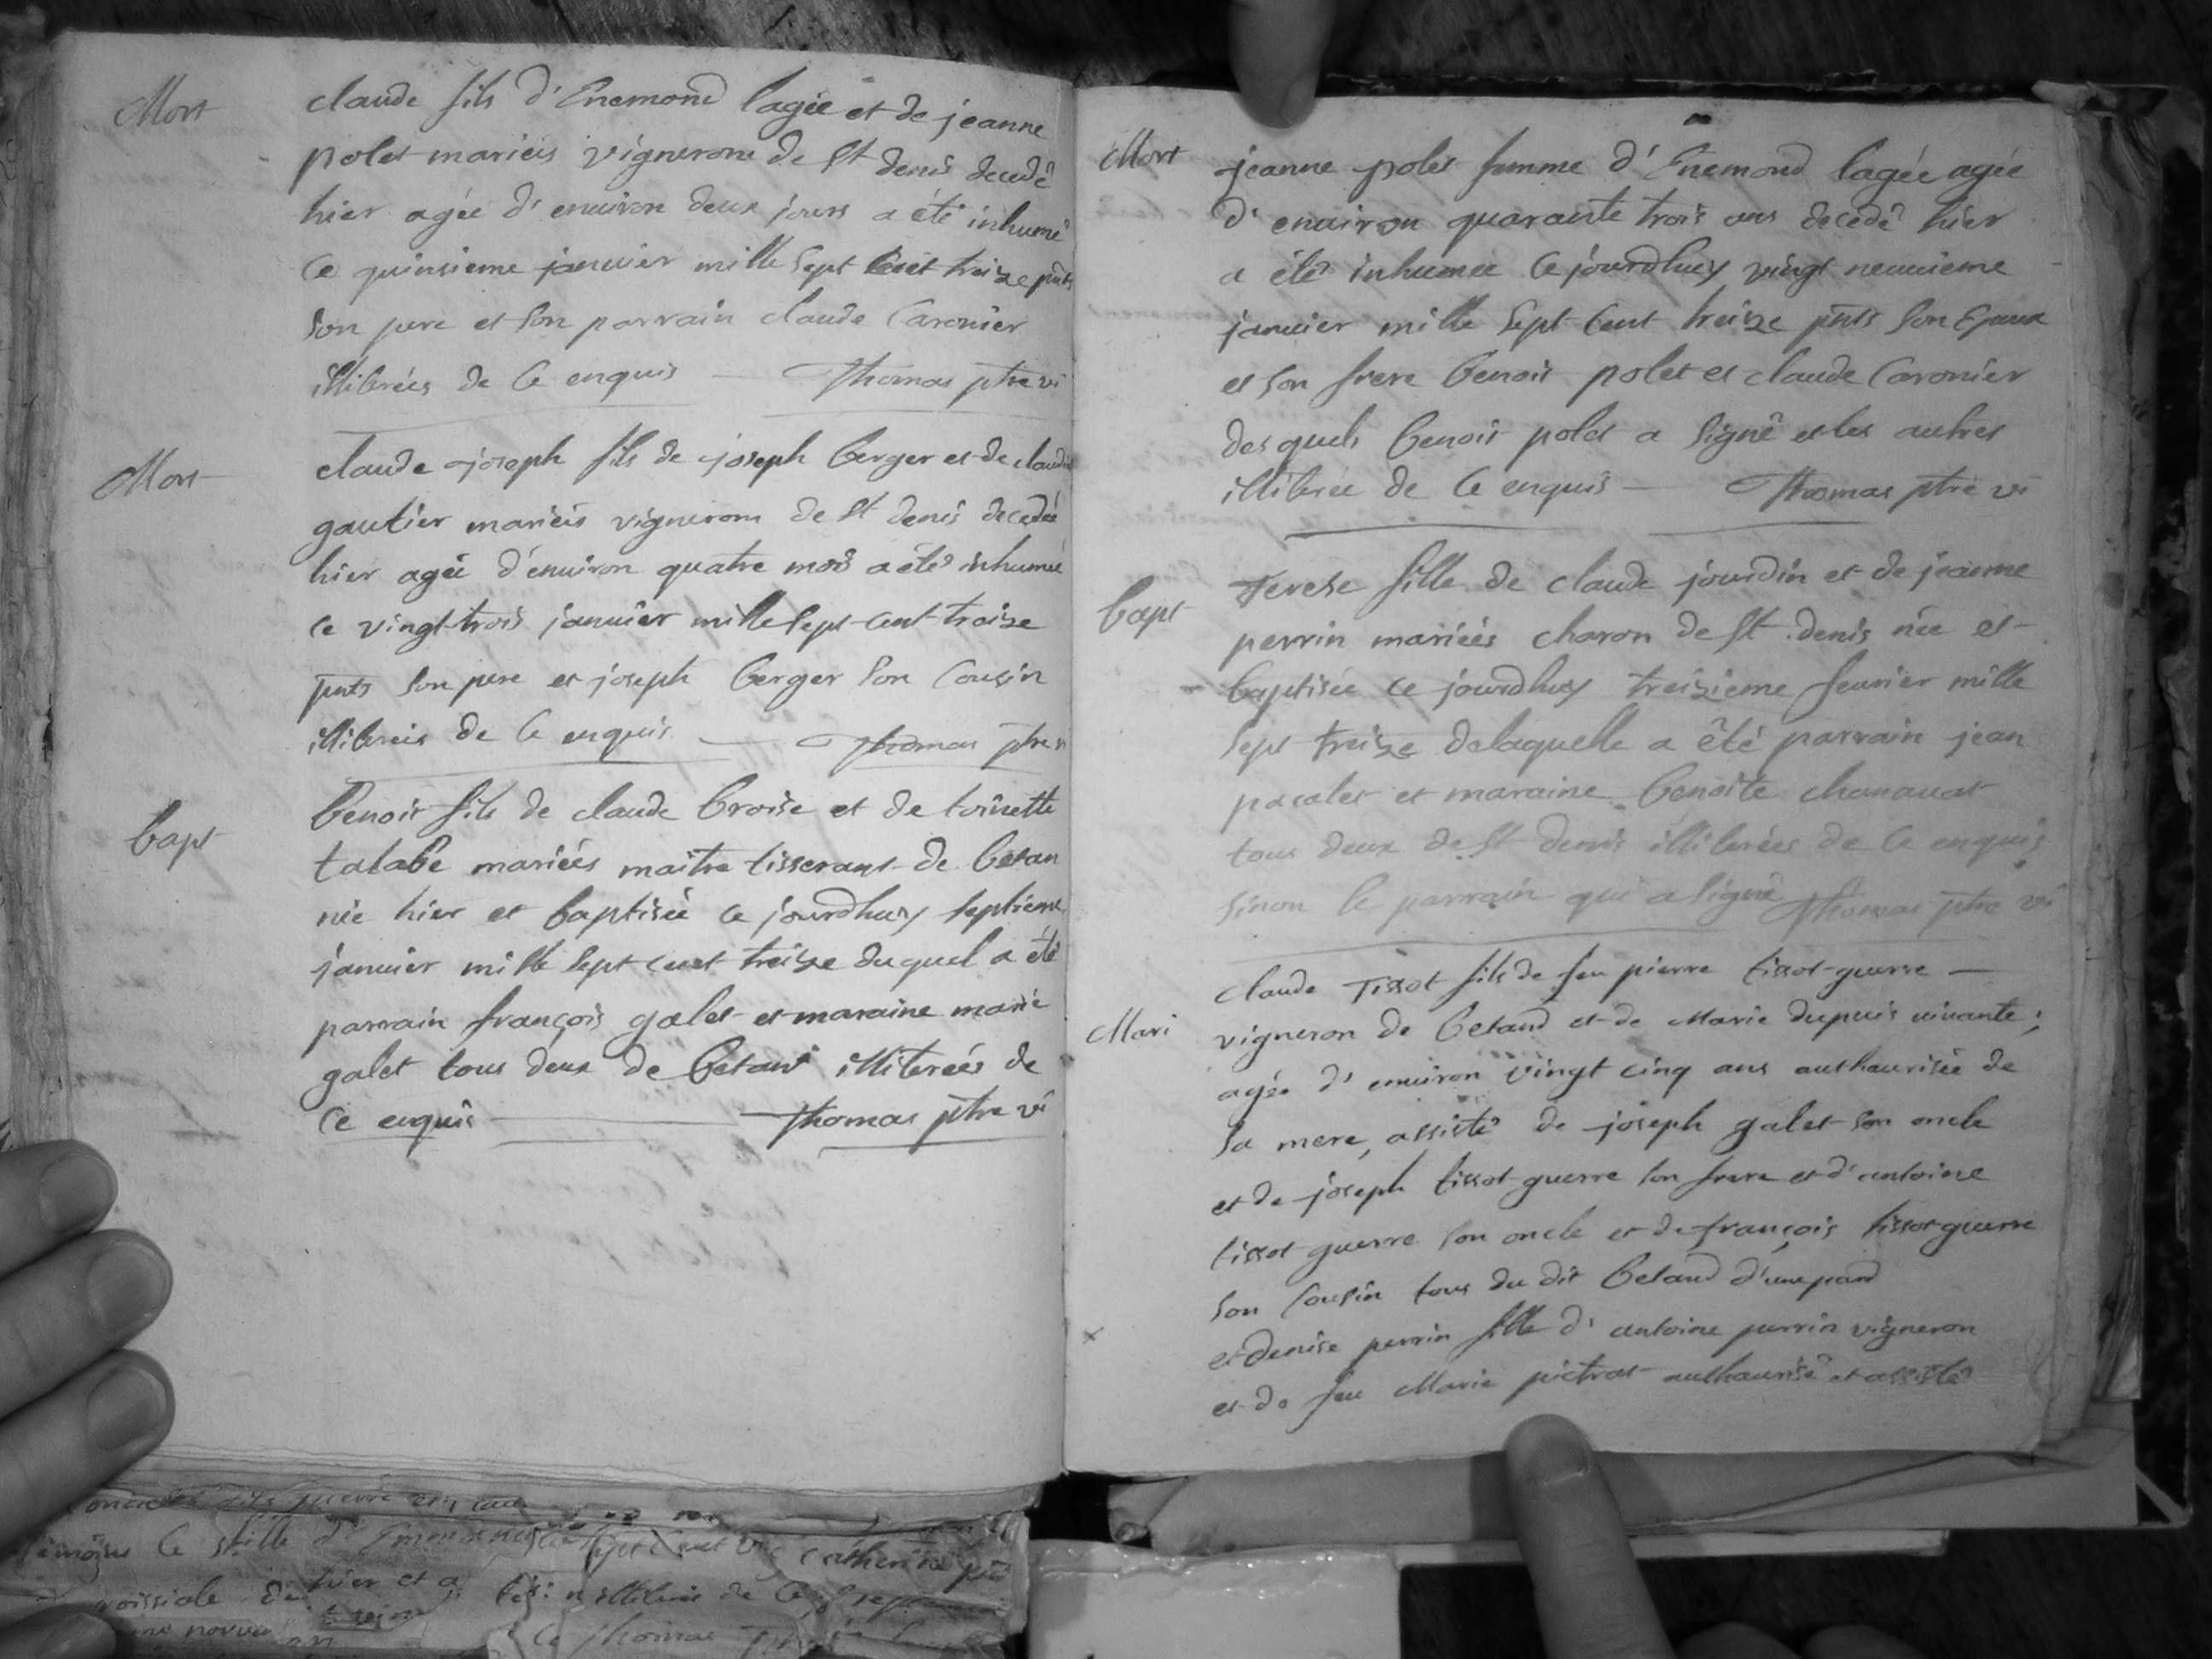 Mort
claude fils d'Enemond lagée et de jeanne
polet mariées vignerons de St denis decedé
hier agée d'environ deux jours a été inhumé
ce quinsieme janvier mille sept cent treize pnts
son pere et son parrain claude Caronier
illiterées de ce enquis Thomas ptre vi
Mort
claude joseph fils de joseph berger et de claudine
gautier mariées vignerons de St denis decedée
hier agée d'environ quatre mois a été inhumé
ce vingt-trois janvier mille sept cent treize
pnts son pere et joseph berger son cousin
illiterées de ce enquis Thomas ptre vi
bapt
benoit fils de claude broise et de toinette
talabe mariées maitre tisserant de betan
née hier et baptisée ce jourdhuy septieme
janvier mille sept cent treize duquel a été
parrain françois galet et maraine marie
galet tous deux de betant illiterées de
ce enquis Thomas ptre vi
Mort
jeanne polet femme d'Enemond lagée agée
d'environ quarante trois ans decedé hier
a été inhumée ce jourdhuy vingt neuvieme
janvier mille sept cent treize pnts son Epoux
et son frere benoit polet et claude Caronier
desquels benoit polet a signé et les autres
illiterée de ce enquis Thomas ptre vi
bapt
Terese fille de claude jourdin et de jeanne
perrin mariées charon de St denis née et
baptisée ce jourdhuy treizieme fevrier mille
sept treize delaquelle a été parrain jean
pacalet et maraine benoite chanavat
tous deux de St denis illiterées de ce enquis
sinon le parrain qui a signé Thomas ptre vi
Mari
claude Tissot fils de feu pierre tissot-guerre
vigneron de betand et de Marie dupuis vivante ;
agée d'environ vingt cinq ans authaurisée de
sa mere, assisté de joseph galet son oncle
et de joseph tissot guerre son frere et d'antoine
tissot guerre son oncle et de françois tissot guerre
son cousin tous du dit betand d'une pard
x
et denise perrin fille d'antoine perrin vigneron
et de feu Marie pictrat authaurisé et assisté